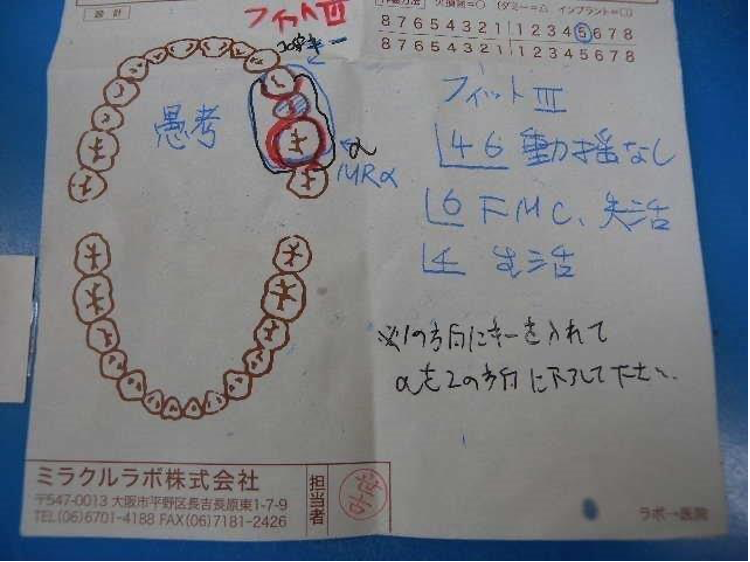 設計
フィットⅢ
欠損歯=○ (ダミー=△ インプラント=□)
8 7 6 5 4 3 2 1 1 2 3 4 5 6 7 8
8 7 6 5 4 3 2 1 1 2 3 4 5 6 7 8
愚考
α
MRα
フィットⅢ
46 動揺なし
6 FMC、失活
4 生活
※1の方向にキーを入れて
αを2の方向に下ろして下さい。
ミラクルラボ株式会社
〒547-0013 大阪市平野区長吉長原東1-7-9
TEL(06)6701-4188 FAX(06)7181-2426
担当者
ラボ→医院